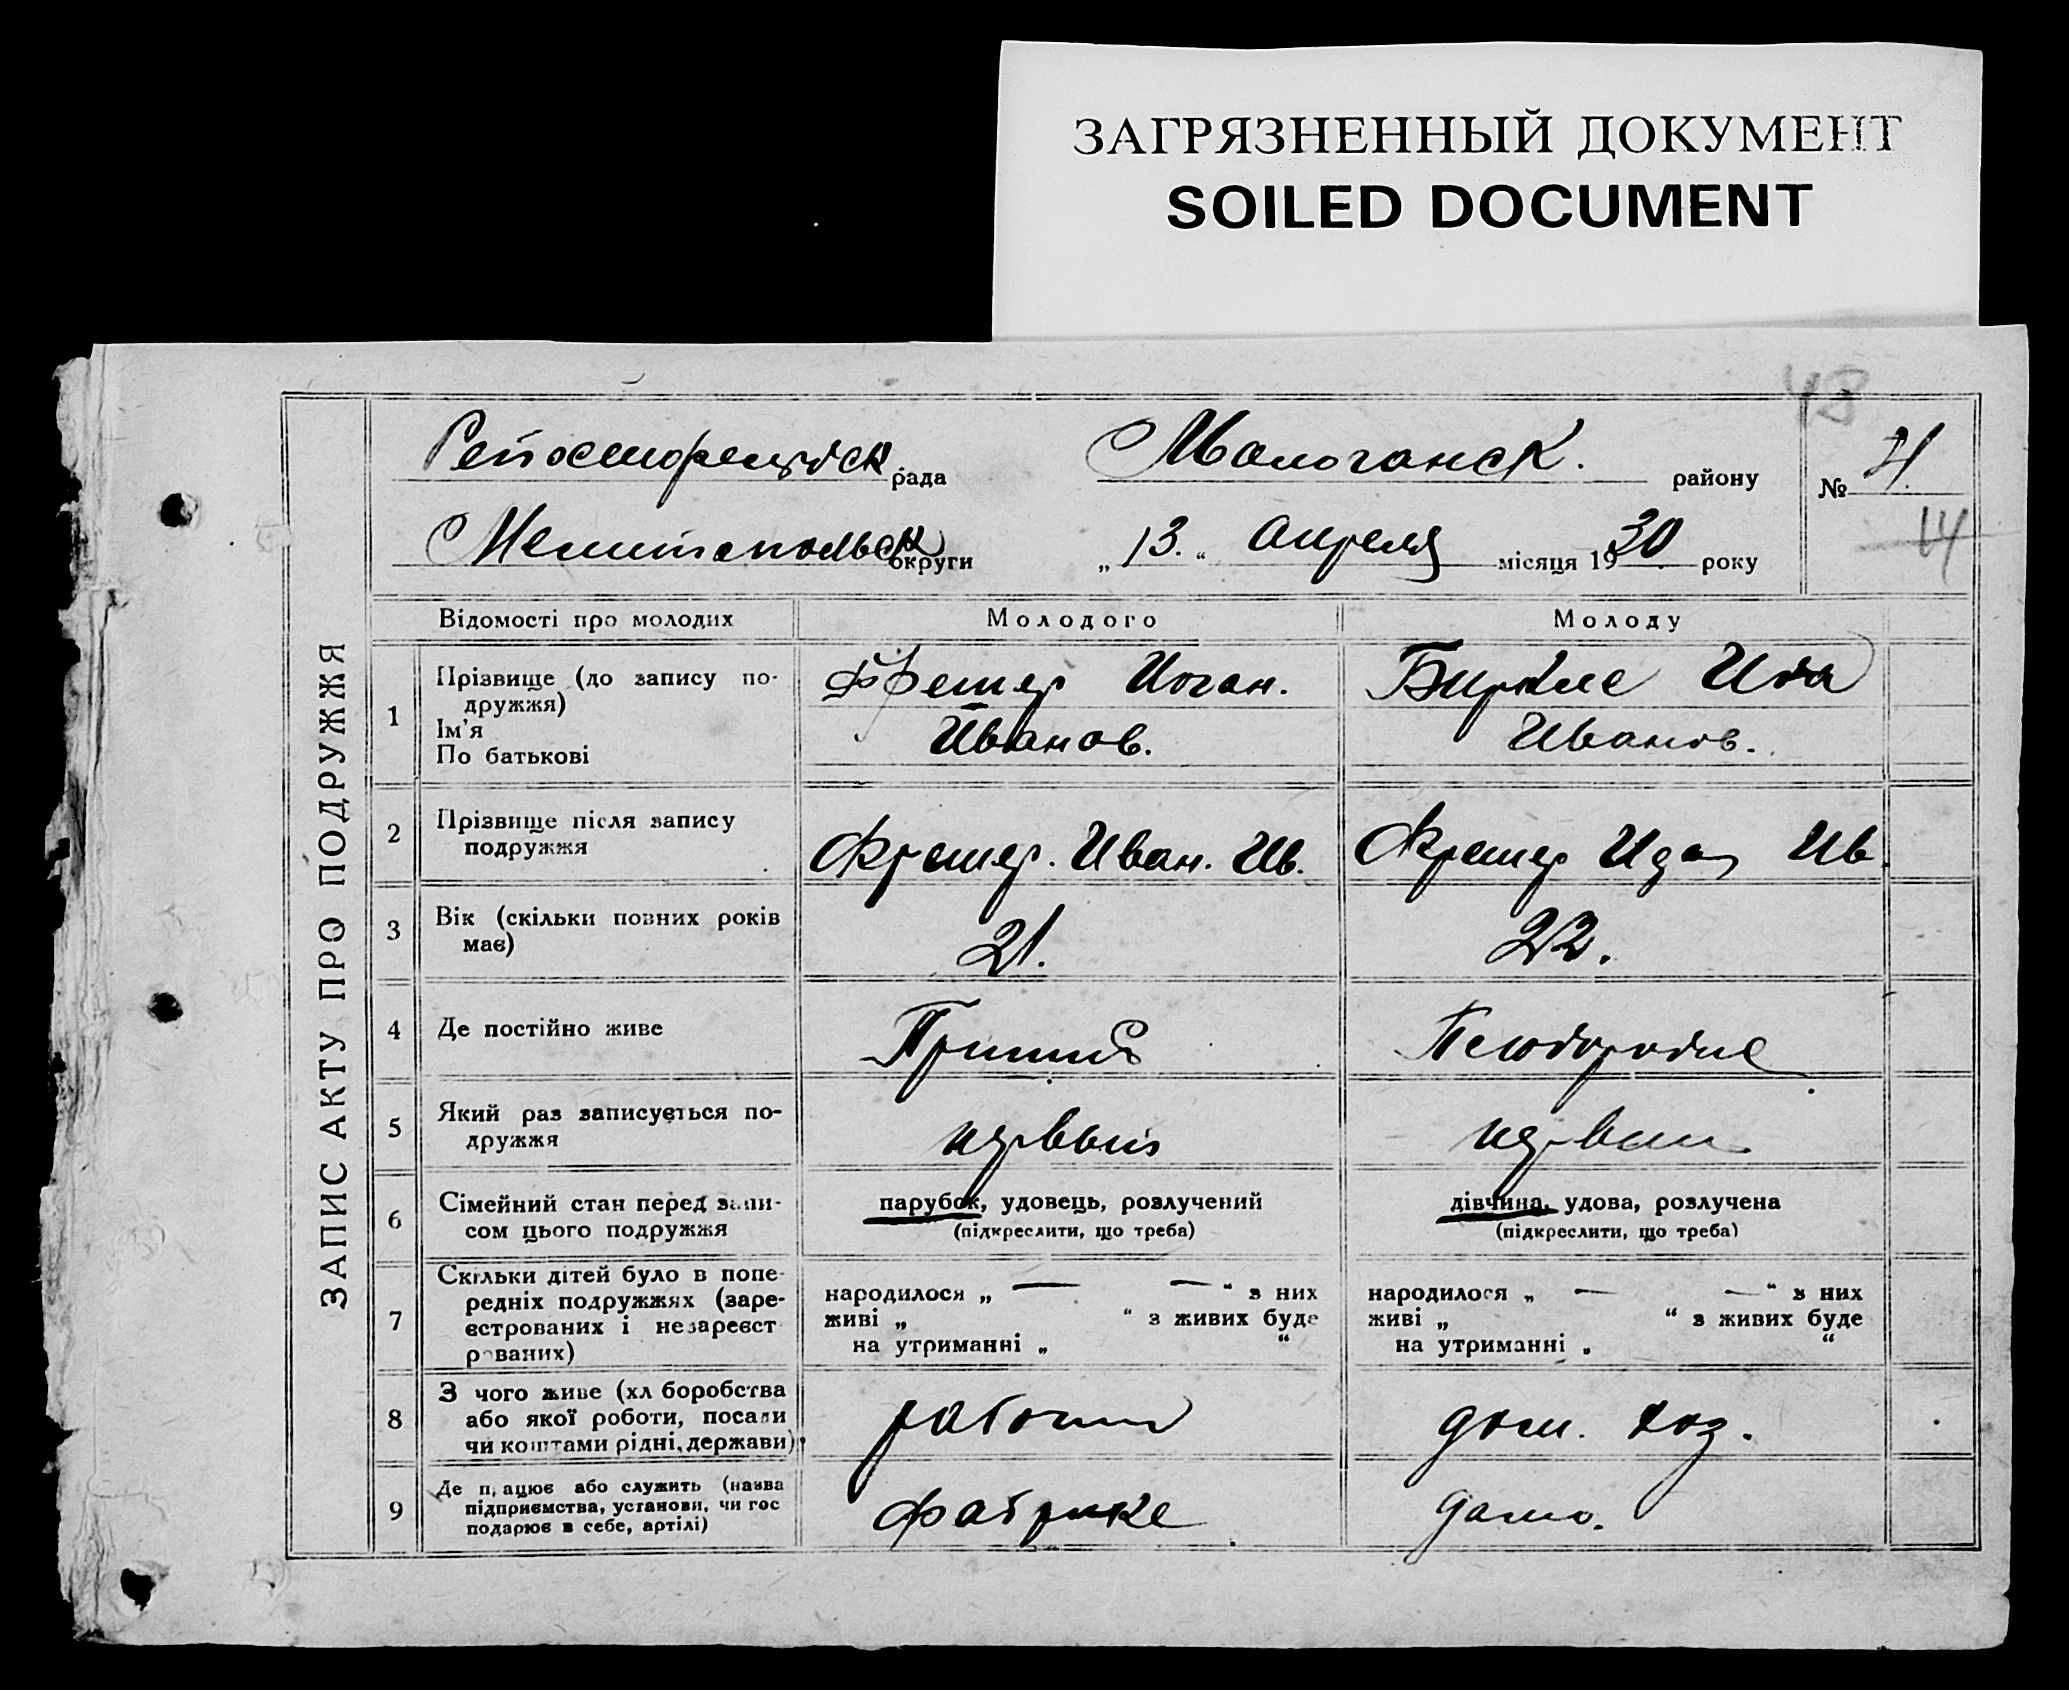 ЗАГРЯЗНЕННЫЙ ДОКУМЕНТ
SOILED DOCUMENT
43
рада
Мологанск. району
№ 4.
14
Мелитопольск округи
„13.“ апреля місяця 1930 року
ЗАПИС АКТУ ПРО ПОДРУЖЖЯ
Відомості про молодих
Молодого
Молоду
1
Прізвище (до запису по-
дружжя)
Ім'я
По батькові
Иоган.
Иванов.
Ида
Иванов.
2
Прізвище після запису
подружжя
Фретер. Иван. Ив.
Фретер Ида Ив.
3
Вік (скільки повних років
має)
21.
22.
4
Де постійно живе
Пришиб
5
Який раз записується по-
дружжя
первый
первый
6
Сімейний стан перед запи-
сом цього подружжя
парубок, удовець, розлучений
(підкреслити, що треба)
дівчина, удова, розлучена
(підкреслити, що треба)
7
Скільки дітей було в попе-
редніх подружжях (заре-
єстрованих і незареєст
рованих)
народилося „ — — “ з них
живі „ “ з живих буде
на утриманні „ “
народилося „ — — “ з них
живі „ “ з живих буде
на утриманні „ “
8
З чого живе (хліборобства
або якої роботи, посади
чи коштами рідні, держави)
рабочий
дом. хоз.
9
Де працює або служить (назва
підприємства, установи, чи гос
подарює в себе, артілі)
фабрике
дома.